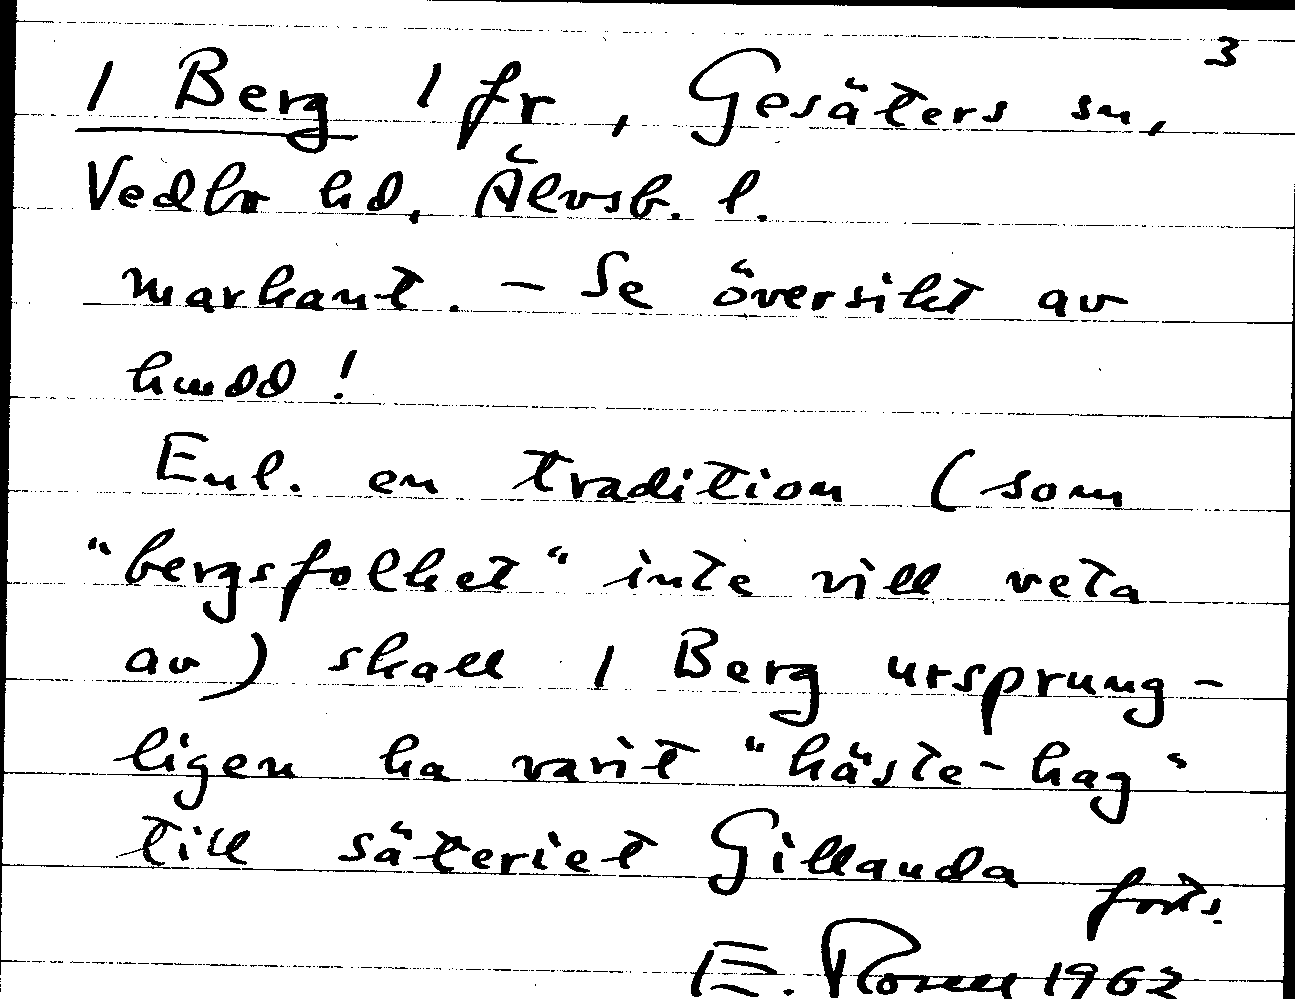 3
1 Berg 1 fr, Gesäters sn,
Vedbo hd, Älvsb. l.
markant. - Se översikt av
hmdd!
Enl. en tradition (som
"bergsfolket" inte vill veta
av) skall 1 Berg ursprung-
ligen ha varit "häste-hag"
till säteriet Gillanda forts.
E. 1962